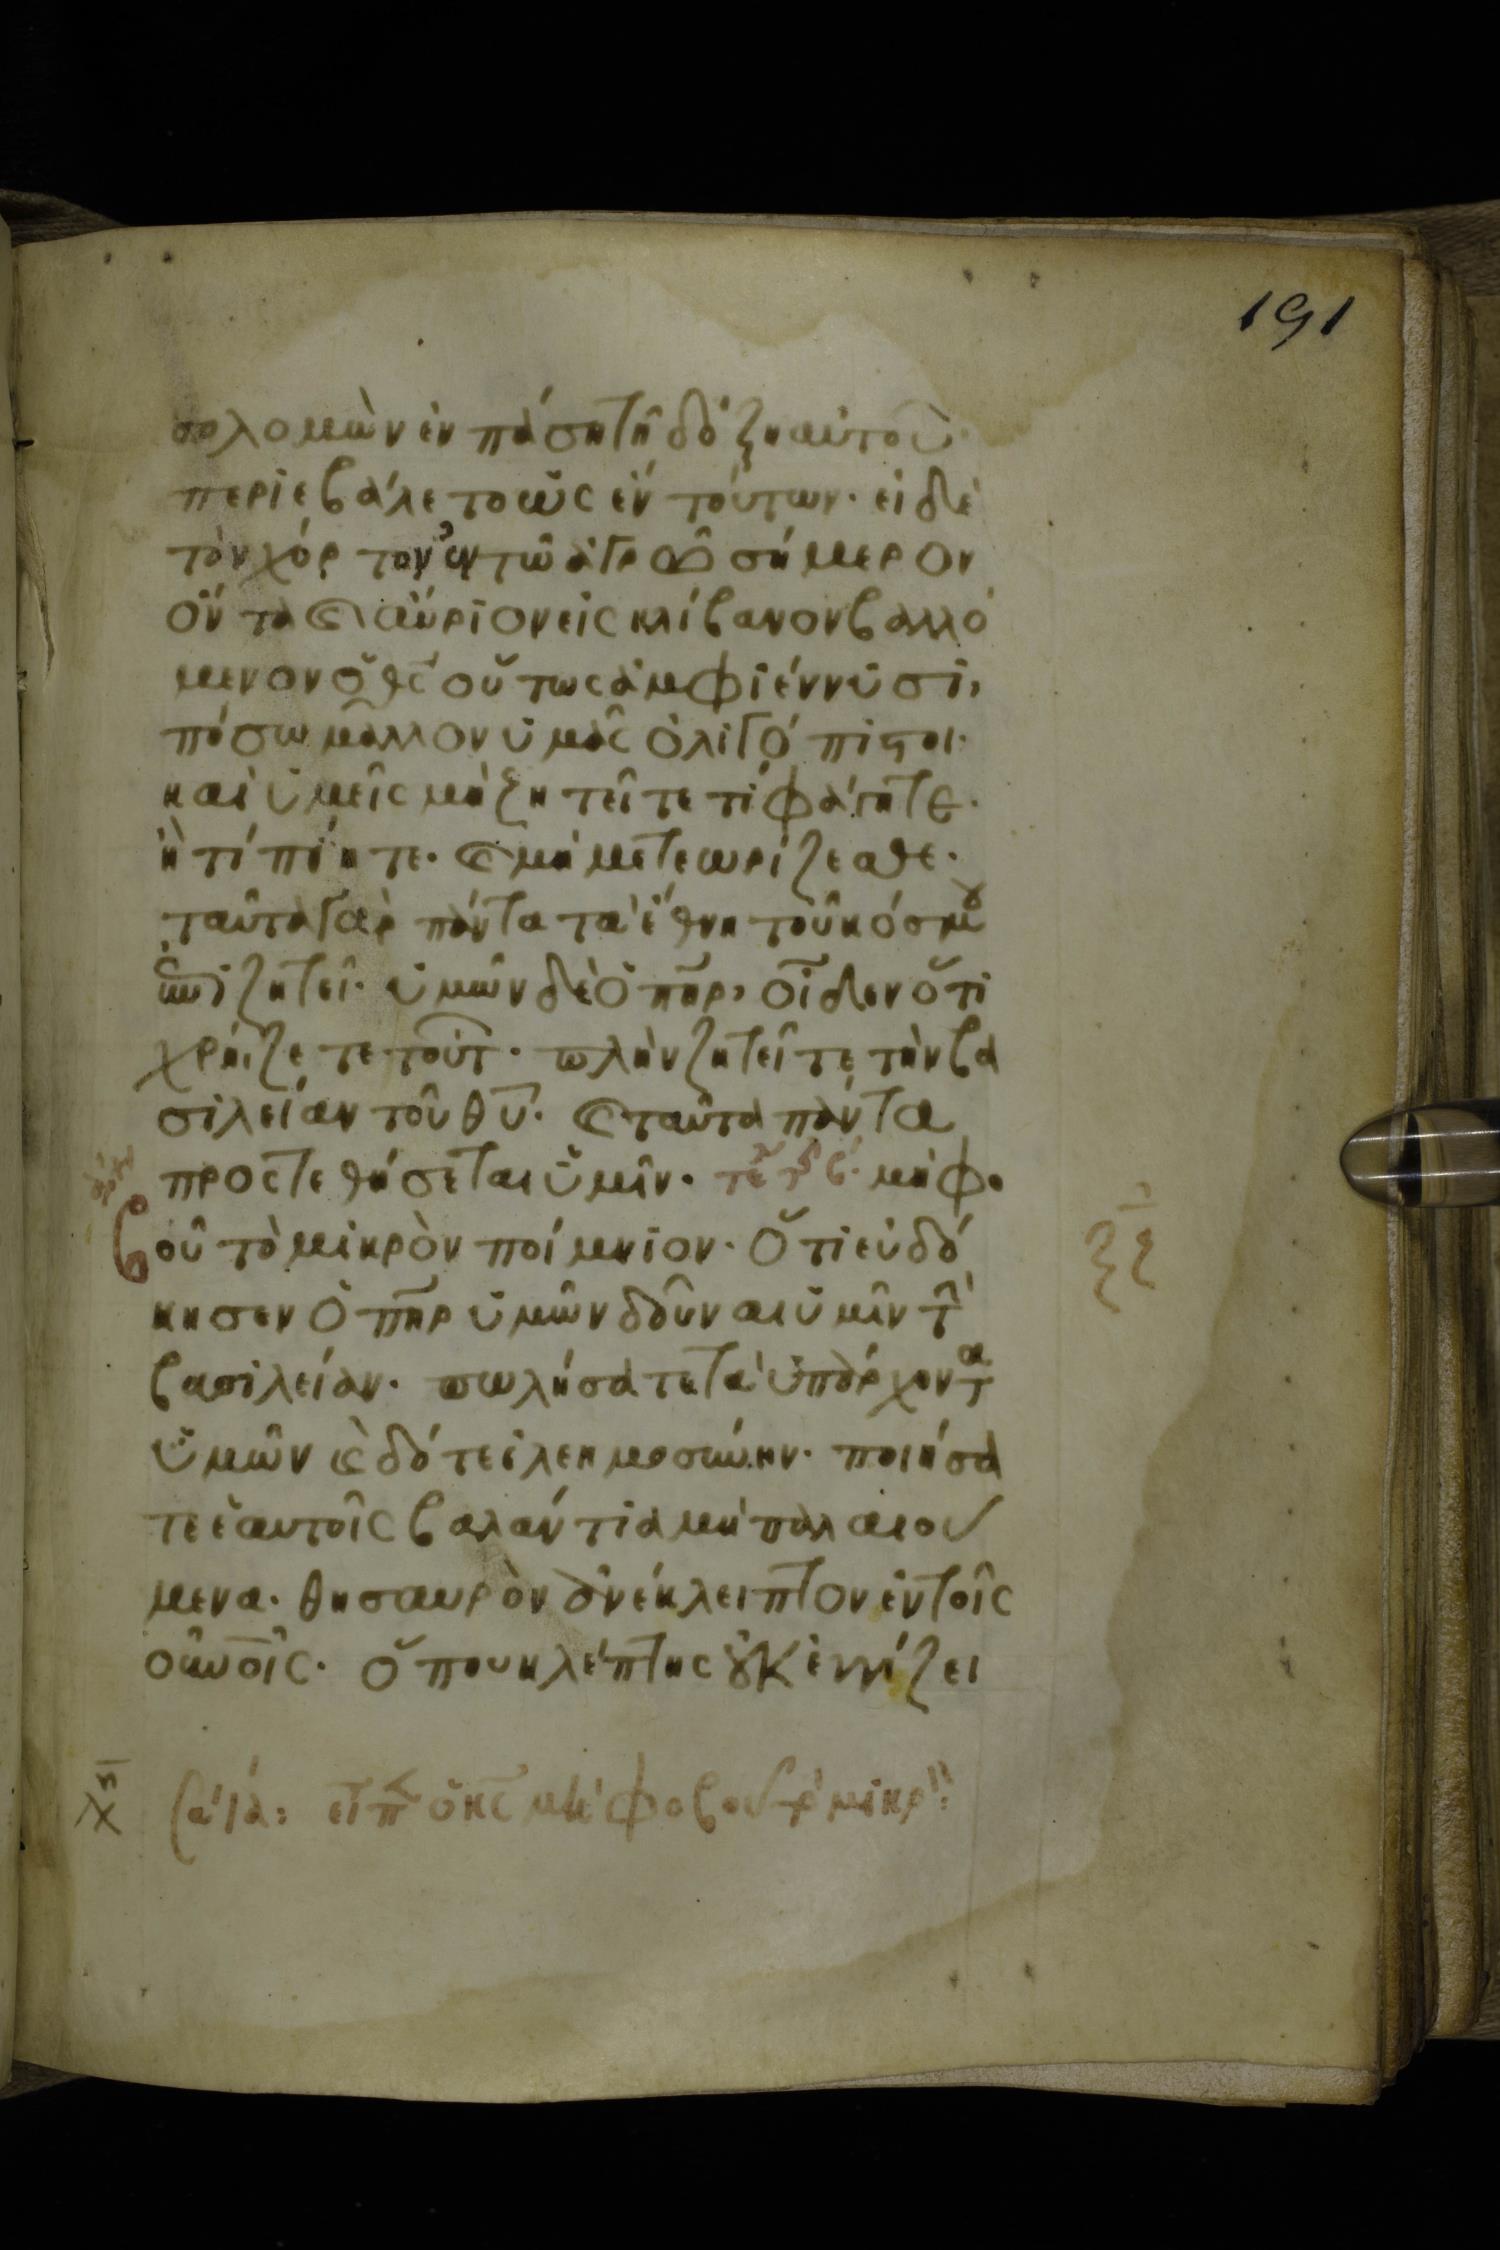 191
σολομὼν ἐν πάσῃ τῆ δόξη αὐτοῦ
περιεβάλετο ὡς ἕν τούτων· εἰ δὲ
τὸν χόρτον ἐν τῶ ἀγρῶ σήμερον
ὄντα ϗ αὔριον εἰς κλίβανον βαλλό
μενον ὁ θς̅ οὕτως ἀμφιέννυσι,
πόσω μᾶλλον ὑμᾶς ὀλιγόπιστοι·
καὶ ὑμεῖς μὴ ζητεῖτε τί φάγητε·
ἢ τί πίητε· ϗ μὴ μετεωρίζεσθε·
ταῦτα γὰρ πάντα τὰ ἔθνη τοῦ κόσμου
ἐπιζητεῖ· ὑμῶν δὲ ὁ πη̅ρ, οἶδεν ὅτι
χρήζετε τούτ· πλὴν ζητεῖτε τὴν βα
σιλείαν τοῦ θυ̅· ϗ ταῦτα πάντα
προστεθήσεται ὑμῖν· τε τς β· μὴ φο
βοῦ τὸ μικρὸν ποίμνιον· ὅτι εὐδό
κησεν ὁ πη̅ρ ὑμῶν δοῦναι ὑμῖν τὴν
βασιλείαν· πωλήσατε τὰ ὑπάρχοντα
ὑμῶν ϗ δότε ἐλεημοσύνην· ποιήσα
τε ἑαυτοῖς βαλάντια μὴ παλαιού
μενα· θησαυρὸν ἀνέκλειπτον ἐν τοῖς
οὐνοῖς· ὅπου κλέπτης οὐκ ἐγγίζει
εἶπ ὁ κς̅ μὴ φοβοῦ τὸ μικρ